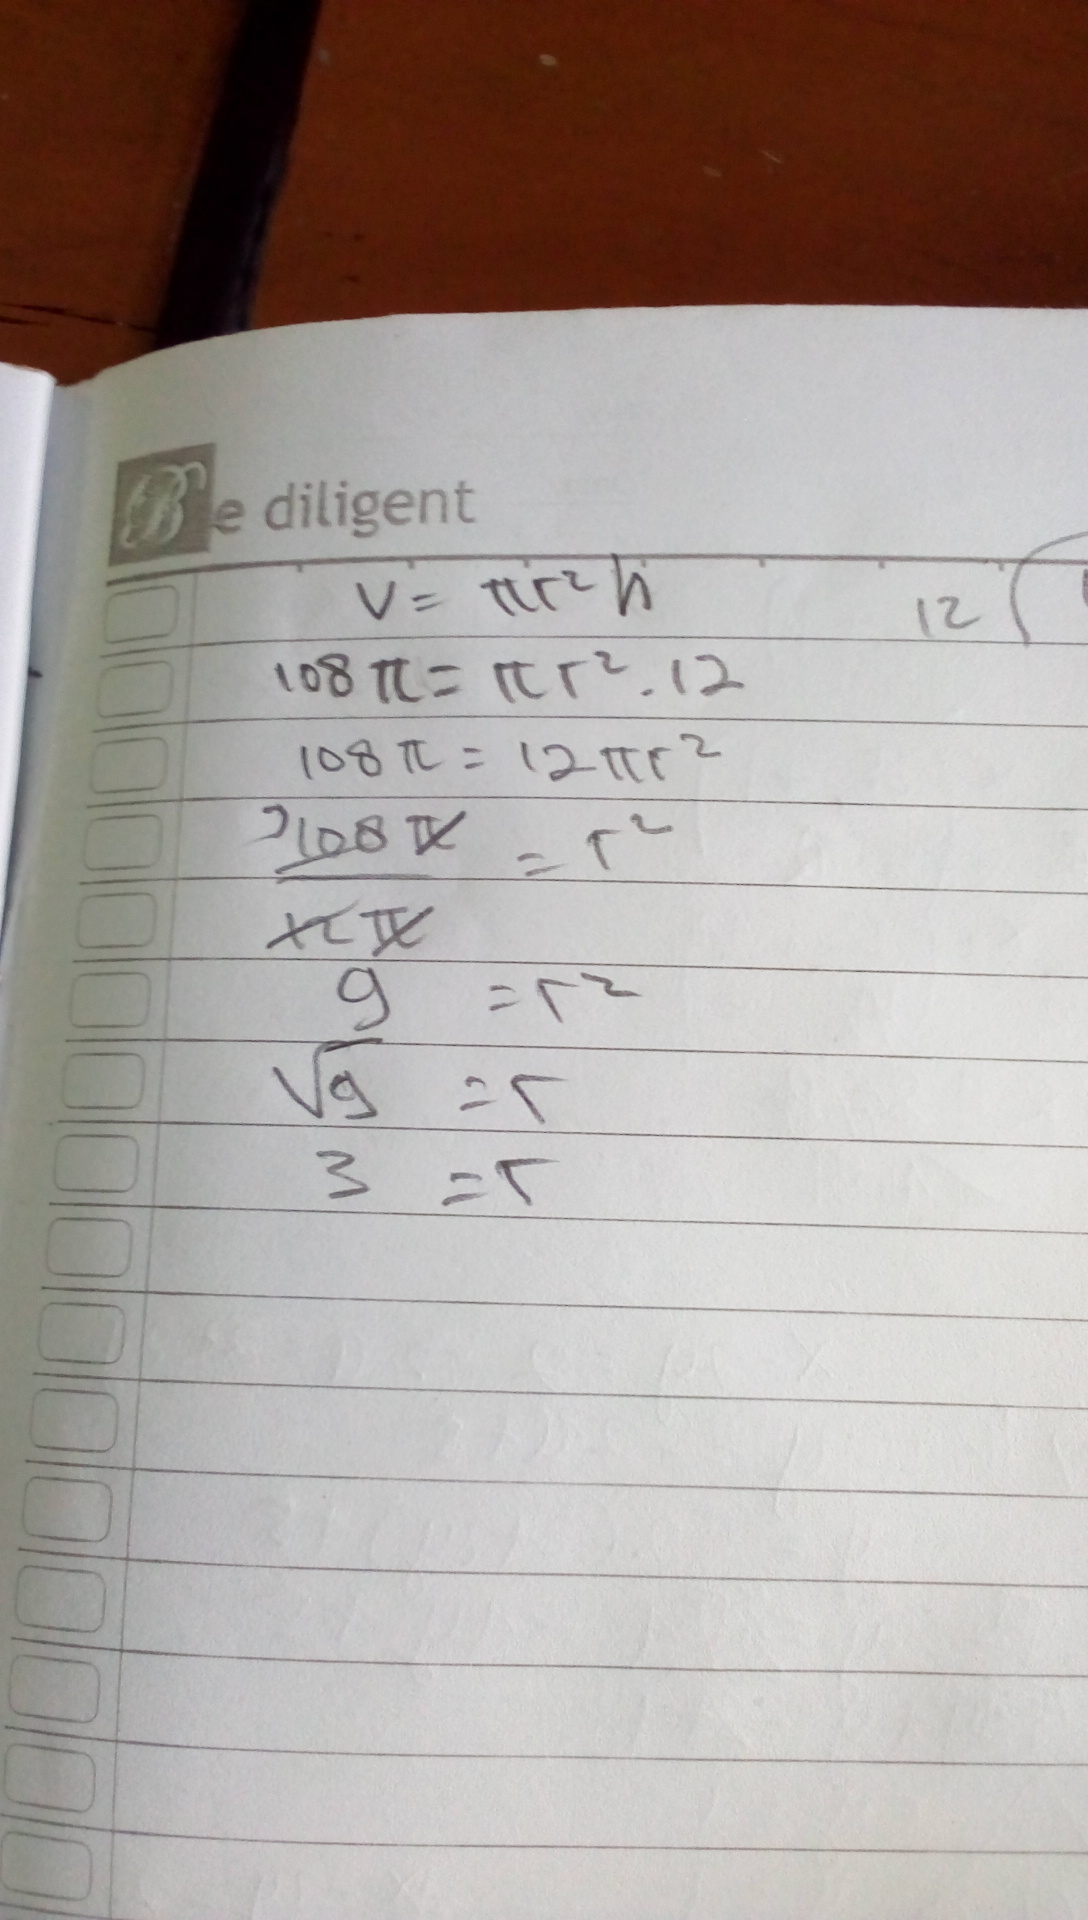 Be diligent
V = πr²h
12
108π = πr². 12
108π = 12πr²
9 108π = r²
12π
9 = r²
√9 = r
3 = r